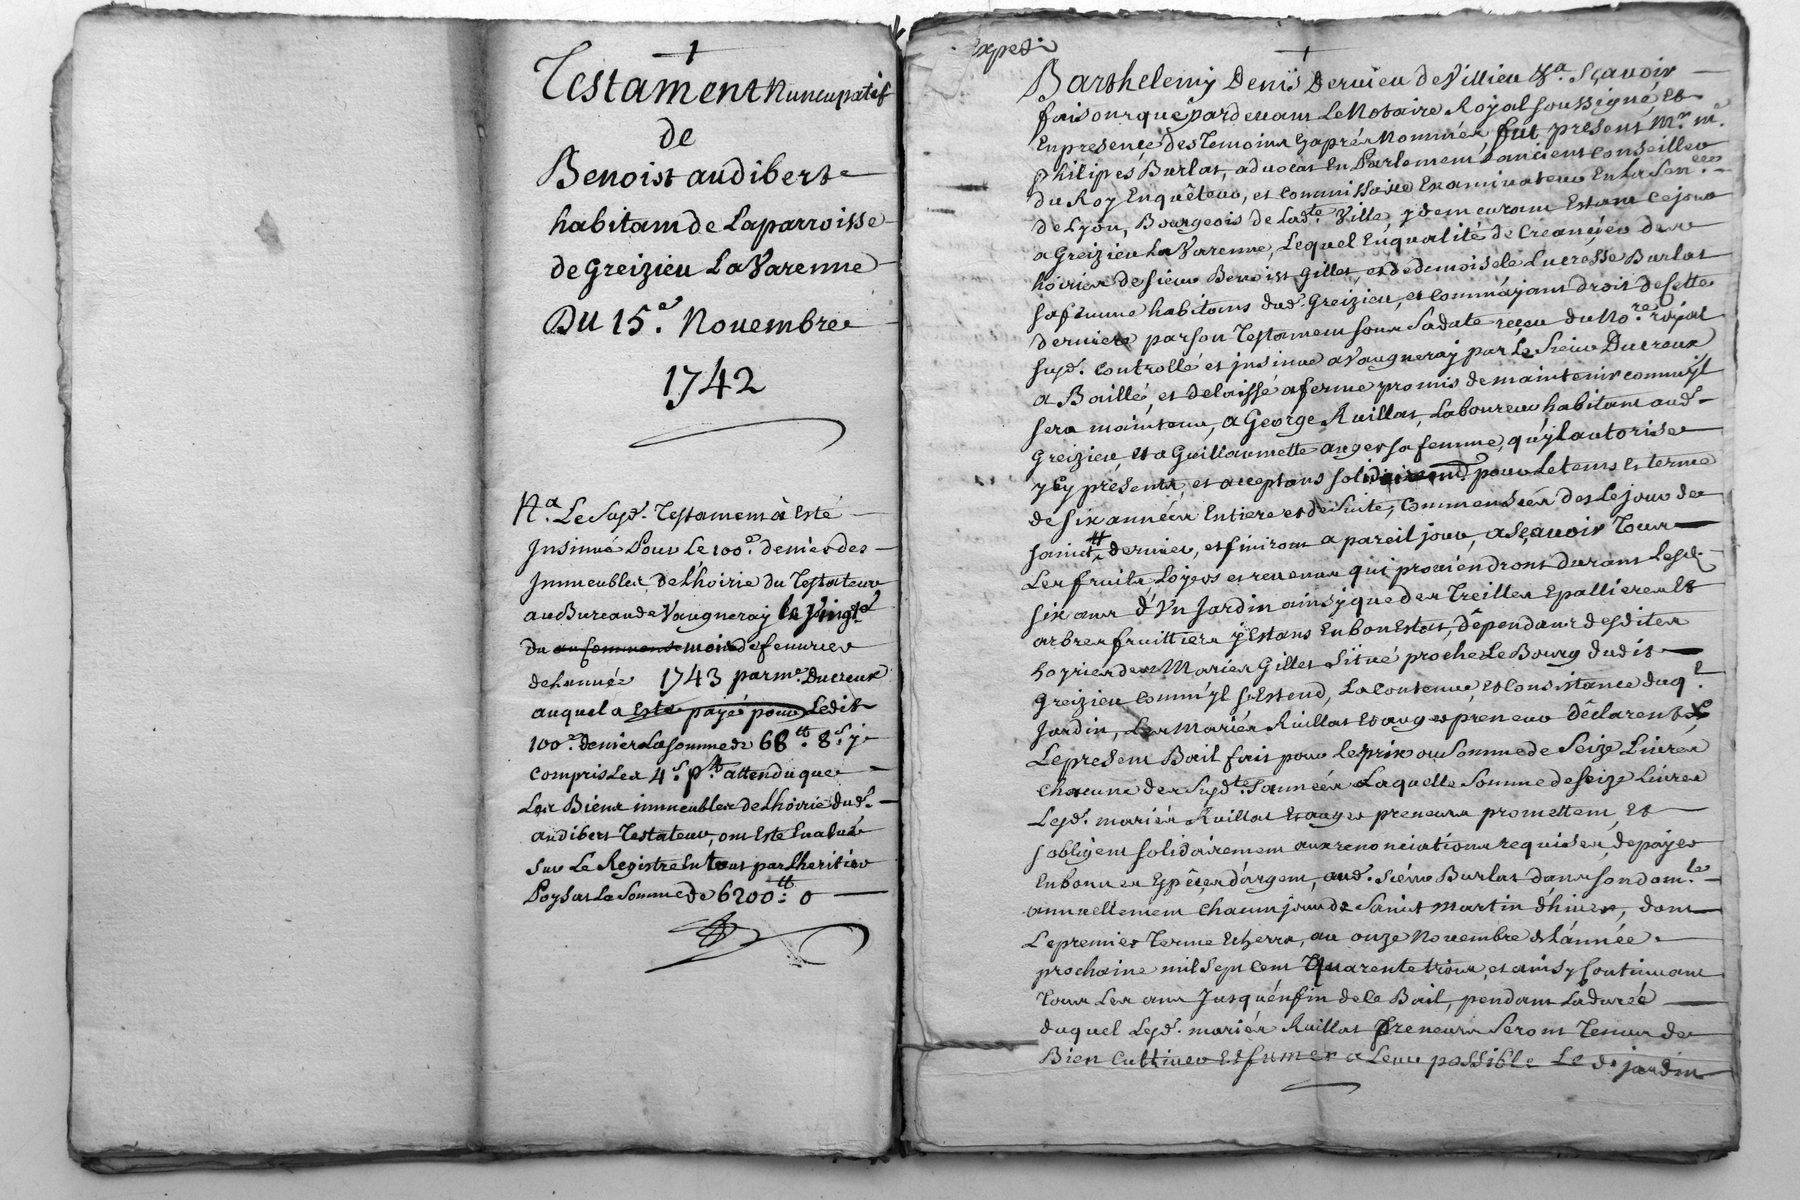 Testament Nuncupatif
de
Benoist audibert
habitant de Laparroisse
de Greizieu La Varenne
Du 15.e Nouembre
1742
Na. Le Susd. Testament à Esté
Insinué Pour Le 100.e denier des
Immeubles de L'hoirie du Testateur
au Bureau de Vaugneray le vingt
du mois de feurier
de Lannée 1743 par me. Ducreux
auquel a Esté payée pour Ledit
100.e denier La somme de 68tt. 8s. y
Compris Les 4s. ptt. attendu que
Les Biens immeubles de Lhoirie dud.
audibert Testateur, ont Esté Evalués
Sur Le Registre En tout par Lheritier
Pour La Somme de 6200tt. 0
Exped.
Barthelemy Denis Dervieu de Villieu &a. Sçauoir
faisons que pardeuant Le Notaire Royal soussigné Et
En presence des Temoins Cy aprés Nommés fut present Mr. me.
philipes Burlat, aduocat En Parlement, ancient Conseiller
du Roy Enquêteur, et Commissaire Examinateur En La Sen.ée
de Lyon, Bourgeois de Lad.te Ville, y demeurant Estant Cejour
a Greizieu La Varenne, Lequel En qualité de Creancier de
hoirie de sieur Benoist Gillet, et de demoiselle Lucresse Burlat
sa femme habitans dud. Greizieu, et comme ayant droit de cette
derniere par son Testament sous sa date reçu du No.re royal
susd. Controllé et insinué a Vaugneray par Le Sieur Ducreux
a Baillé, et delaissé a ferme promis de maintenir comm'yl
sera maintenu, a George Ruillat, Laboureur habitant aud.
Greizieu et a Guillaumette auger sa femme, qu'yl autorise
y Cy présents, et acceptans solidairemt. pour Le tems et terme
de six années Entiere et de Suite, Commensées des Le jour de
saint dernier, et finiront a pareil jour, a sçauoir Tous
Les fruits, Loyers et reuenus qui prouiendront durant Lesd.
six ans d'Vn Jardin ainsy que des Treilles Epallieres Et
arbres fruittiers y Estans En bon Estat, Dépendant desdites
hoyries des Mariés Gillet, Situé proche Le Bourg dudit
Greizieu Comm'yl s'Estend, La Contenue, et Consistance duql.
Jardin, Les Mariés Ruillat et auger preneurs Déclarent
Le present Bail fait pour Le prix ou Somme de Seize Liures
Chacune des Susd.tes années Laquelle Somme de seize Liures
Lesd. mariés Ruillat Et auger preneurs promettent, et
s'obligent solidairement aux renonciations requises, de payer
En bonnes Espéces d'argent, aud. sieur Burlat dans son dom.le
annuellement Chacun jour de Saint Martin d'hiuer, dont
Le premier Terme Echerra, au onze Novembre de L'année
prochaine mil Sept Cent Quarente trois, et ainsy Continuant
Tous Les ans Jusqu'én fin de Le Bail, pendant La durée
duquel Lesd. mariés Ruillat Preneurs Seront Tenus de
Bien Cultiuer Et fumer a Leur possible Le d. jardin